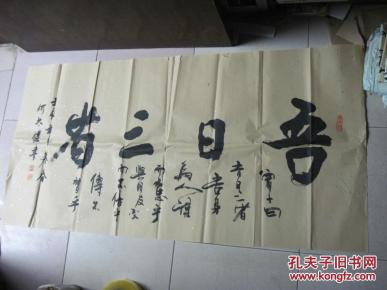 吾日三省
曾子曰
吾日三省
吾身
為人謀
而不忠乎
與朋友交
而不信乎
傳不
習乎
孔夫子旧书网
www.kongfz.com